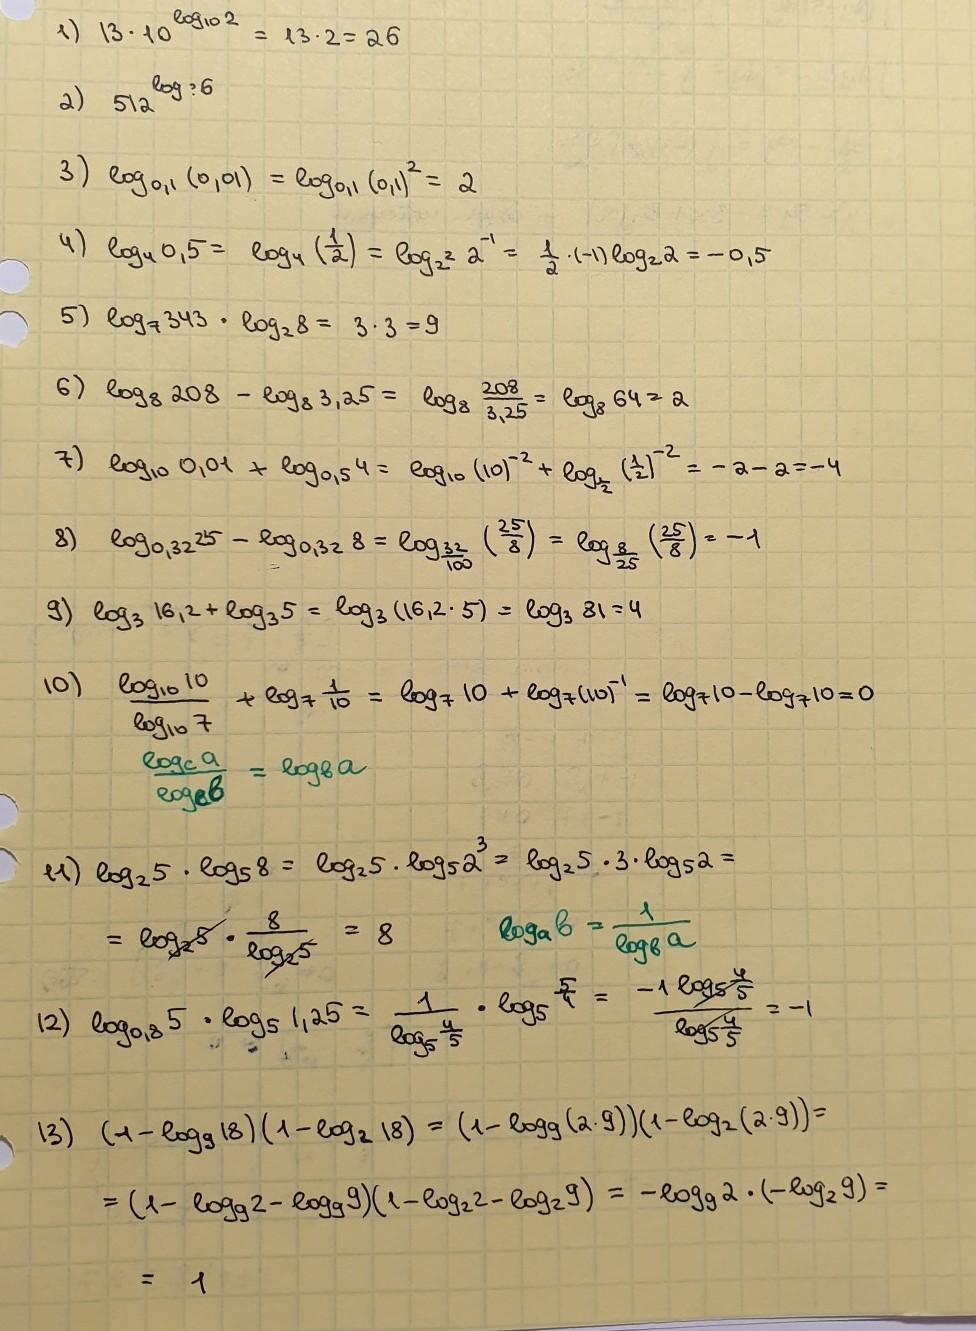 1) 13·10^{log₁₀2} = 13·2 = 26
2) 512^{log?6}
3) log₀,₁(0,01) = log₀,₁(0,1)² = 2
4) log₄0,5 = log₄(1/2) = log_{2²} 2⁻¹ = 1/2·(-1)log₂2 = -0,5
5) log₇343 · log₂8 = 3·3 = 9
6) log₈208 - log₈3,25 = log₈ 208/3,25 = log₈64 = 2
7) log₁₀0,01 + log₀,₅4 = log₁₀(10)⁻² + log_{1/2}(1/2)⁻² = -2-2 = -4
8) log₀,₃₂25 - log₀,₃₂8 = log_{32/100}(25/8) = log_{8/25}(25/8) = -1
9) log₃16,2 + log₃5 = log₃(16,2·5) = log₃81 = 4
10) log₁₀10/log₁₀7 + log₇ 1/10 = log₇10 + log₇(10)⁻¹ = log₇10 - log₇10 = 0
log_c a/log_c b = log_b a
11) log₂5 · log₅8 = log₂5 · log₅2³ = log₂5 · 3 · log₅2 =
= log₂5 · 8/log₂5 = 8 log_a b = 1/log_b a
12) log₀,₈5 · log₅1,25 = 1/log₅ 4/5 · log₅ 5/4 = -1 log₅ 4/5 / log₅ 4/5 = -1
13) (1-log₉18)(1-log₂18) = (1-log₉(2·9))(1-log₂(2·9)) =
= (1-log₉2-log₉9)(1-log₂2-log₂9) = -log₉2·(-log₂9) =
= 1